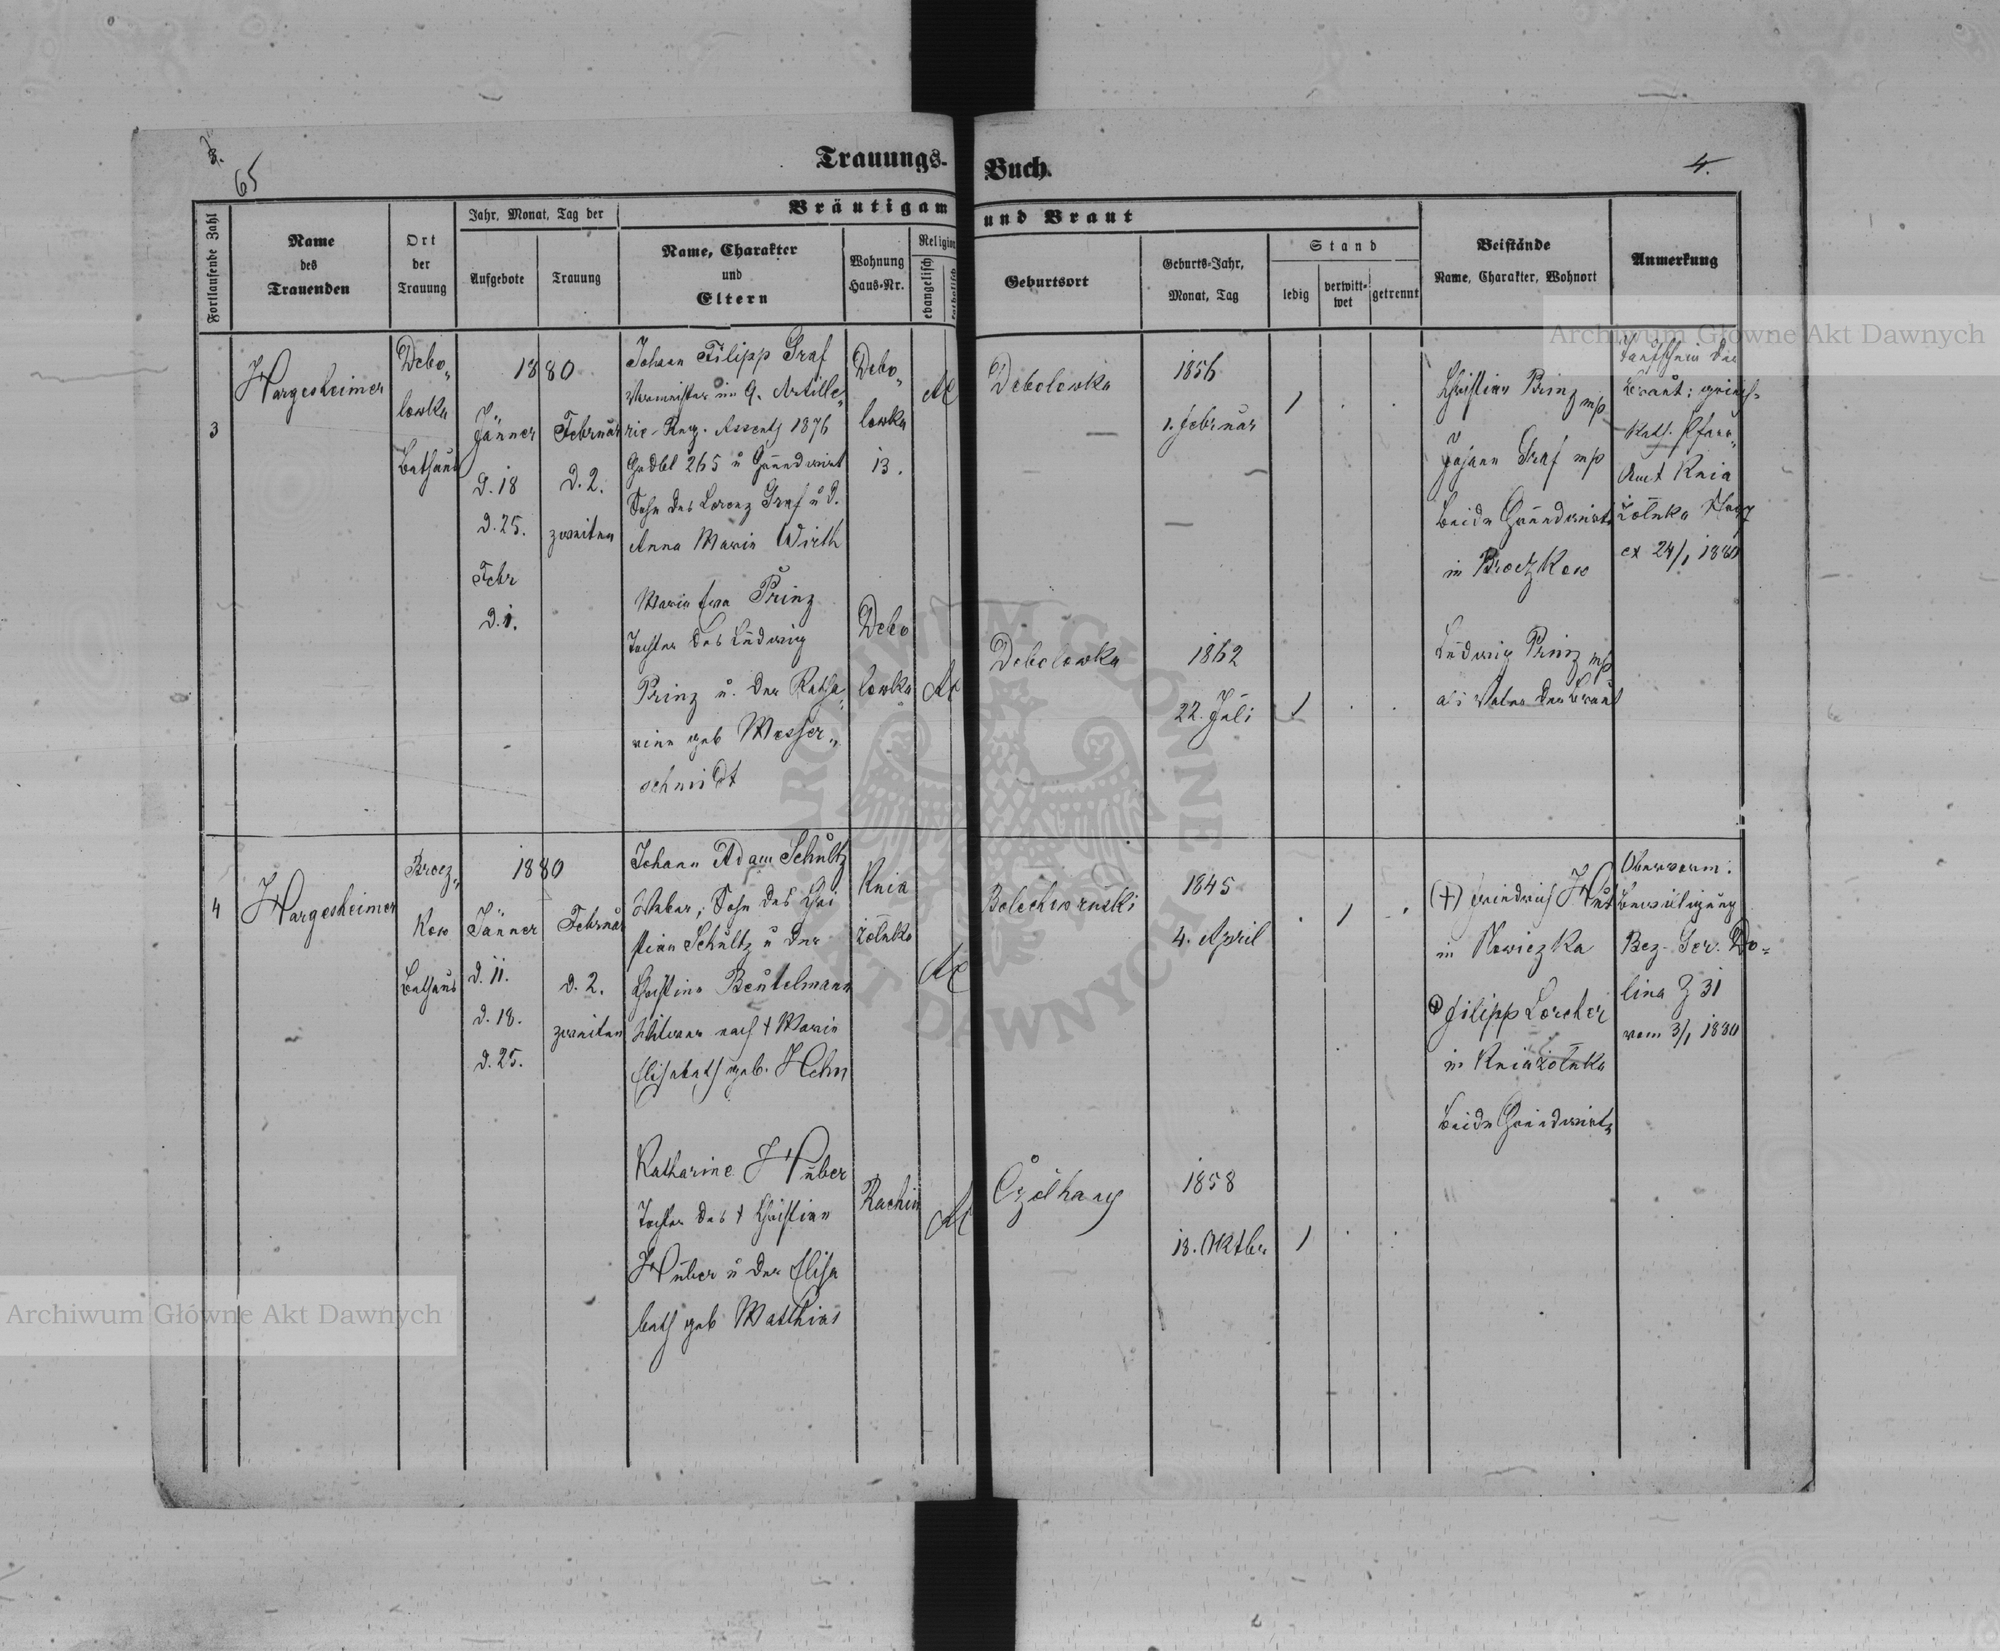 3.
65
Trauungs-Buch.
4.
Fortlaufende Zahl
Name
des
Trauenden
Ort
der
Trauung
Jahr, Monat, Tag der
Aufgebote
Trauung
Bräutigam und Braut
Name, Charakter
und
Eltern
Wohnung
Haus-Nr.
Religion
evangelisch
katholisch
Geburtsort
Geburts-Jahr,
Monat, Tag
Stand
ledig
verwitt-
wet
getrennt
Beistände
Name, Charakter, Wohnort
Anmerkung
3
Hargesheimer
Debo„
lowka
Bethaus
1880
Jänner
d. 18
d. 25.
Febr
d. 1.
Februar
d. 2.
zweiten
Johann Filipp Graf
Vormeister im 9. Artille„
rie-Reg. Assentj 1876
Gdbl 265 u Grundwirt
Sohn des Lorenz Graf u d.
Anna Marie Wirth
Debo„
lowka
13.
AC
Debolowka
1856
1. Februar
1
Christian Prinz mp
Johann Graf mp
beide Grundwirte
in Broczkow
Taufschein der
Braut: griech-
kath. Pfarr„
Amt Knia
żoluka
ex 24/1 1880
Marie Eva Prinz
Tochter des Ludwig
Prinz u. der Katha„
rine geb Messer„
schmidt
Debo
lowka
AC
Debolowka
1862
22. Juli
1
Ludwig Prinz mp
als Vater der Braut
4
Hargesheimer
Brocz„
kow
Bethaus
1880
Jänner
d. 11.
d. 18.
d. 25.
Februar
d. 2.
zweiten
Johann Adam Schultz
Weber, Sohn des Chri
stian Schultz u der
Christine Beutelmann
Witwer nach † Marie
Elisabeth geb. Hehn
Knia
żoluka
AC
Bolechow ruski
1845
4. April
1
(+) Friedrich Hut
in Nowiczka
Filipp Lorcher
in Kniażoluka
beide Grundwirte
Obervorm:
Bewilligung
Bez. Ger. Do-
lina Z 31
vom 3/1 1880
Katharine Huber
Tochter des † Christian
Huber u der Elisa
beth geb Matthias
Rachin
AC
Czolhany
1858
13. Oktbr
1
Archiwum Główne Akt Dawnych
Archiwum Główne Akt Dawnych
ARCHIWUM GŁÓWNE AKT DAWNYCH